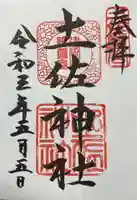 奉拝
土佐神社
令和五年五月五日